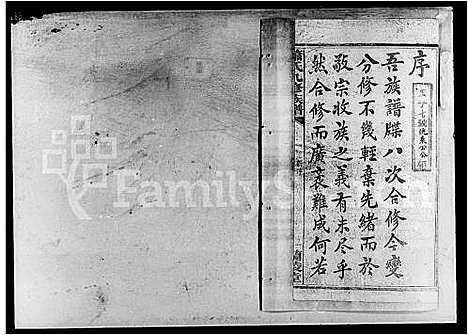 序
吾族譜牒八次合修今變
分修不幾輕棄先緒而於
敬宗收族之義有未尽乎
然合修而廣袤難成何若
蕭氏九修族譜
FamilySearch